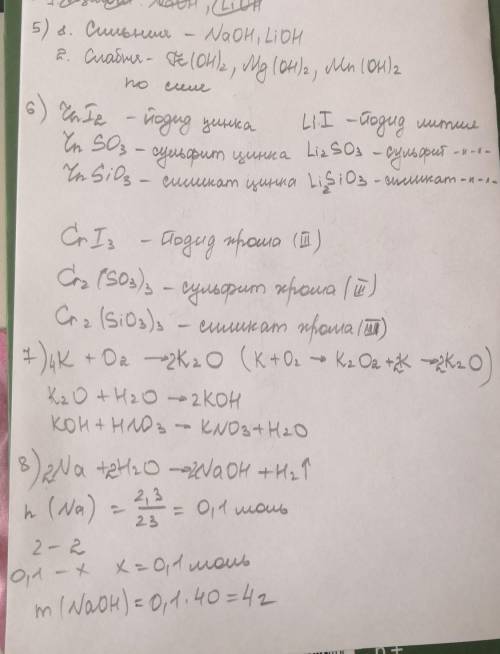 NaOH, LiOH
5) в. Сильния - NaOH, LiOH
2. Слабыя - Fe(OH)2, Mg(OH)2, Mn(OH)2
по силе
6) ZnI2 - йодид цинка LiI - йодид лития
ZnSO3 - сульфит цинка Li2SO3 - сульфит -н-н-
ZnSiO3 - силикат цинка Li2SiO3 - силикат -н-н-
CrI3 - йодид хрома (III)
Cr2(SO3)3 - сульфит хрома (III)
Cr2(SiO3)3 - силикат хрома (III)
7) 4K + O2 → 2K2O (K + O2 → K2O2 + 2K → 2K2O)
K2O + H2O → 2KOH
KOH + HNO3 → KNO3 + H2O
8) 2Na + 2H2O → 2NaOH + H2↑
n (Na) = 2,3/23 = 0,1 моль
2 - 2
0,1 - x x = 0,1 моль
m (NaOH) = 0,1 · 40 = 4г